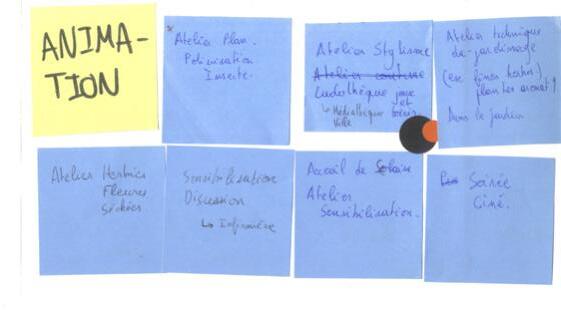 ANIMA-
TION
Atelier Plan.
Polinisation
Insecte.
Atelier Stylisme
Atelier couture
Ludothèque jeux
et
↳ Médiathèque
Ville
Atelier technique
de jardinage
plantes aromat
Dans le jardin
Atelier Herbier
Fleures
Séchées
Sensibilisation
Discussion
↳ Infirmière
Accueil de
Atelier
Sensibilisation.
Soirée
Ciné.